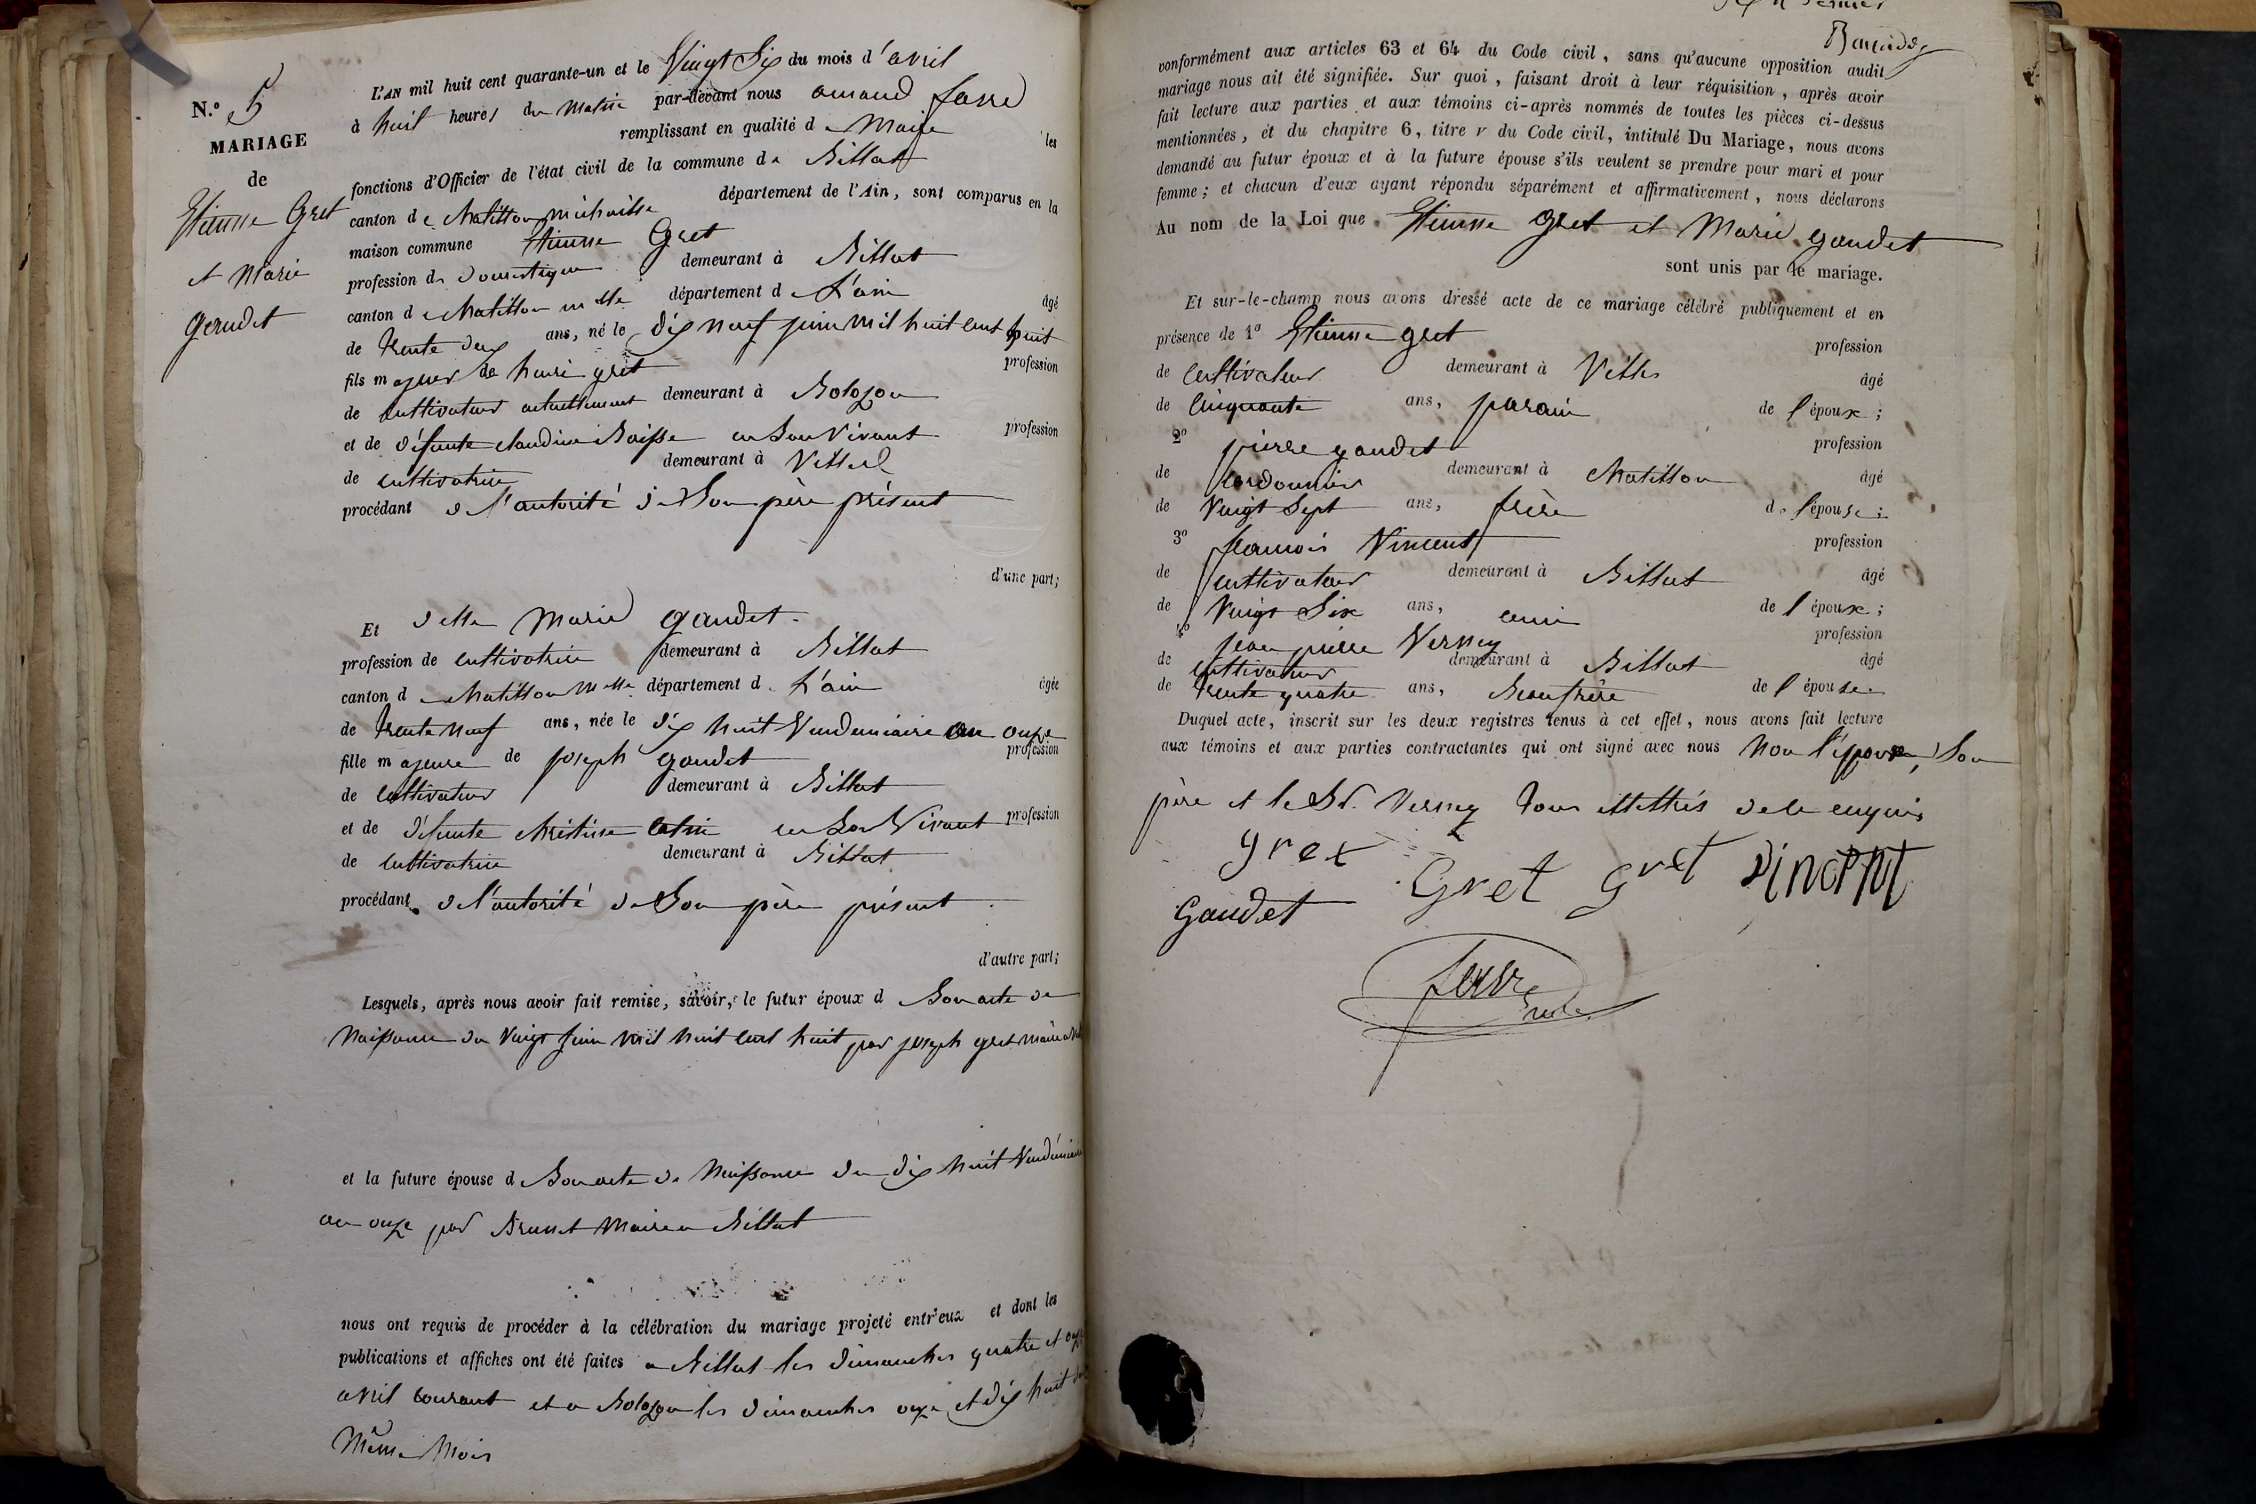 N.º 5
MARIAGE
de
Etienne Gret
et Marie
gaudet
L'AN mil huit cent quarante-un et le Vingt Six du mois d'avril
à huit heures du Matin par-devant nous amand favre
remplissant en qualité de Maire les
fonctions d'Officier de l'état civil de la commune de Billiat
canton de Chatillon michaille département de l'Ain, sont comparus en la
maison commune Etienne Gret
profession de domestique demeurant à Billiat
canton de Chatillon m lle département de L'ain âgé
de trente deux ans, né le dix neuf juin mil huit cent huit
fils majeur de henri gret profession
de cultivateur actuellement demeurant à Bolozon
et de défunte claudine Boisse en Son Vivant profession
de cultivatrice demeurant à Villes
procédant de l'autorité de Son père présent
d'une part;
Et delle Marie gaudet
profession de cultivatrice demeurant à Billiat
canton de Chatillon m lle département de L'ain âgée
de trente neuf ans, née le dix huit Vendemiaire an onze
fille majeure de joseph gaudet profession
de cultivateur demeurant à Billiat
et de défunte christine en Son Vivant profession
de cultivatrice demeurant à Billiat
procédant de l'autorité de Son père présent
d'autre part;
Lesquels, après nous avoir fait remise, savoir, le futur époux d Son acte de
Naissance du Vingt juin mil huit cent huit par joseph gret maire a
et la future épouse d Son acte de Naissance du dix huit Vendémiaire
an onze par Brunet Maire a Billiat
nous ont requis de procéder à la célébration du mariage projeté entr'eux et dont les
publications et affiches ont été faites a Billiat les dimanches quatre et onze
avril courant et a Bolozon les dimanches onze et dix huit du
Même Mois
conformément aux articles 63 et 64 du Code civil, sans qu'aucune opposition audit
mariage nous ait été signifiée. Sur quoi, faisant droit à leur réquisition, après avoir
fait lecture aux parties et aux témoins ci-après nommés de toutes les pièces ci-dessus
mentionnées, et du chapitre 6, titre v du Code civil, intitulé Du Mariage, nous avons
demandé au futur époux et à la future épouse s'ils veulent se prendre pour mari et pour
femme; et chacun d'eux ayant répondu séparément et affirmativement, nous déclarons
Au nom de la Loi que Etienne gret et Marie gaudet
sont unis par le mariage.
Et sur-le-champ nous avons dressé acte de ce mariage célébré publiquement et en
présence de 1º Etienne gret profession
de cultivateur demeurant à Villes âgé
de Cinquante ans, parain de l'époux;
2º pierre gaudet profession
de Cordonnier demeurant à Chatillon âgé
de Vingt Sept ans, frère de l'épouse;
3º francois Vincent profession
de cultivateur demeurant à Billiat âgé
de Vingt Six ans, ami de l'époux;
4º jean pierre Verney profession
de cultivateur demeurant à Billiat âgé
de trente quatre ans, Beaufrère de l'épouse
Duquel acte, inscrit sur les deux registres tenus à cet effet, nous avons fait lecture
aux témoins et aux parties contractantes qui ont signé avec nous Non l'épouse, Son
père et le Sr. Verney tous illettrés de ce enquis
gret Gret gret vincent
Gaudet
favre